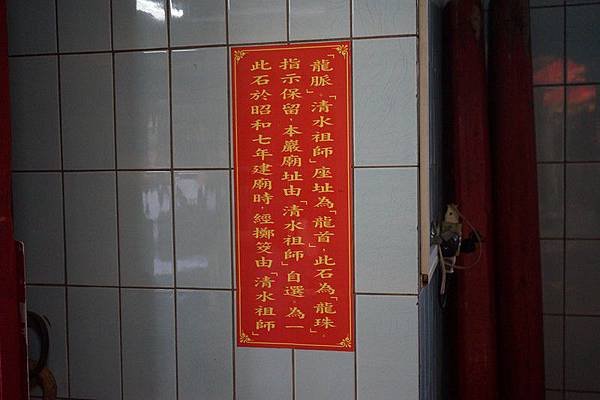 此石於昭和七年建廟時，經擲筊由「清水祖師」
指示保留，本巖廟址由「清水祖師」自選，為一
「龍脈」，「清水祖師」座址為「龍首」，此石為「龍珠」